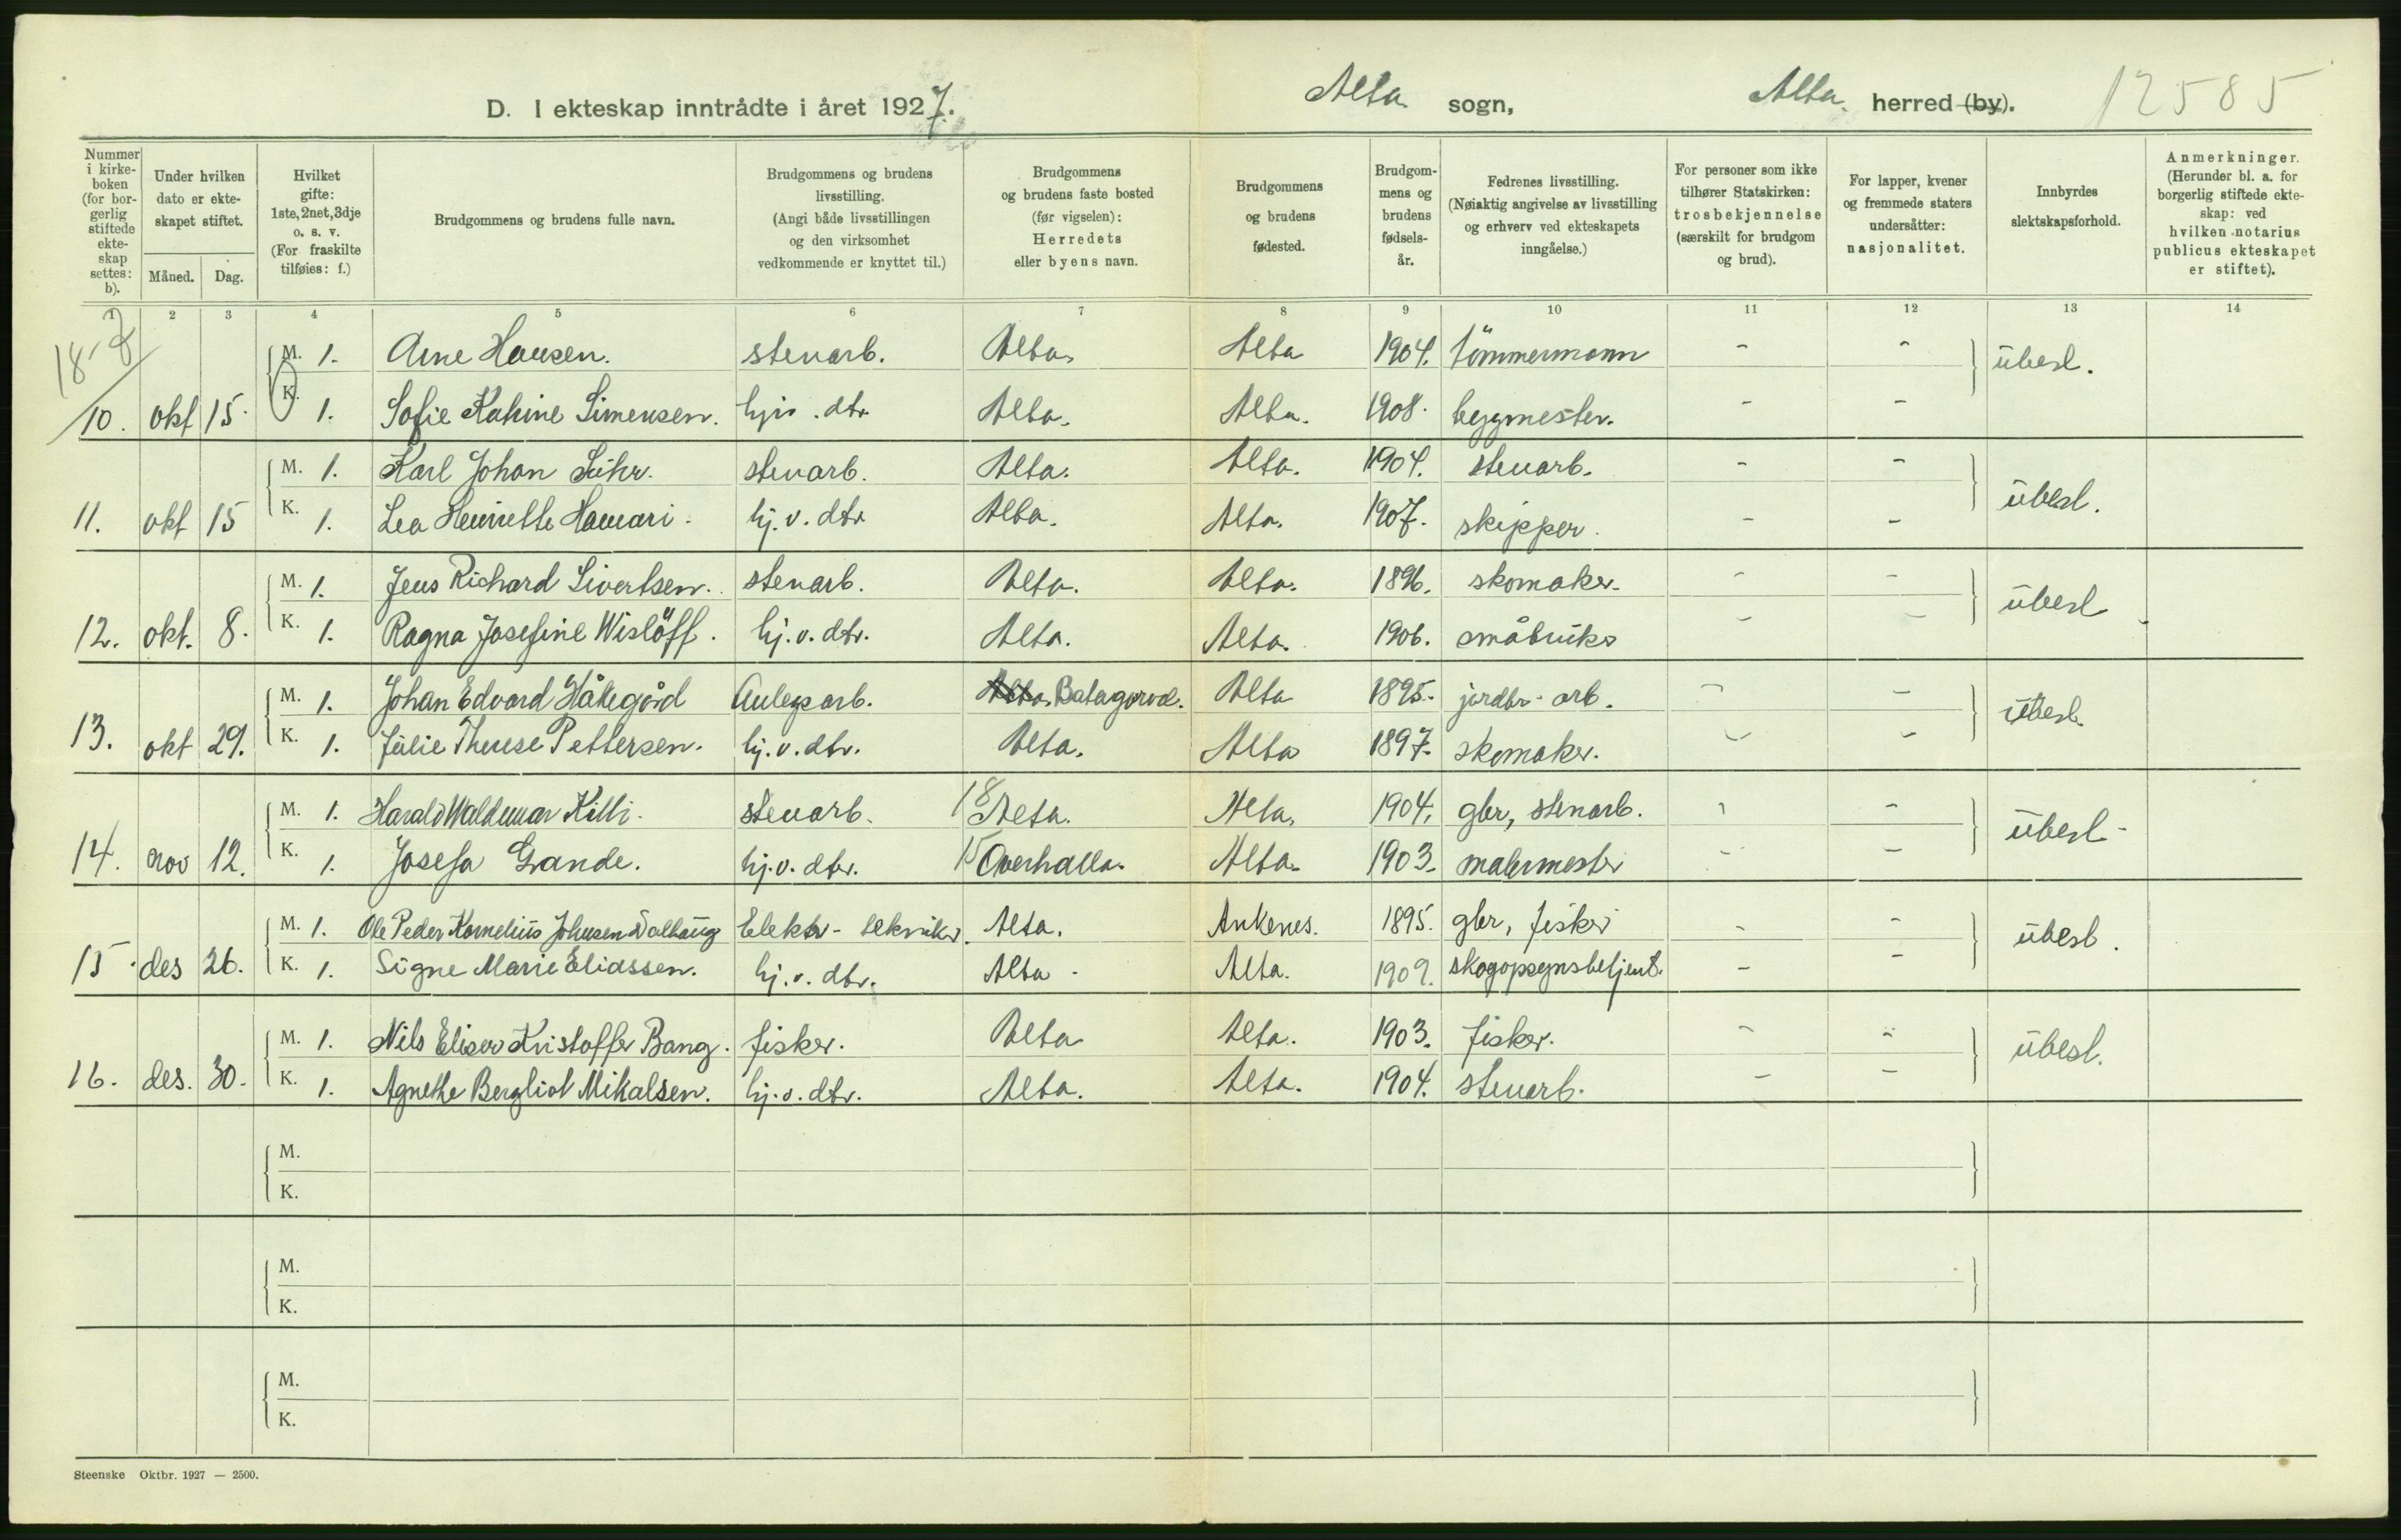 D. I ekteskap inntrådte i året 1927. Alta sogn, Alta herred (by). 12585
Nummer i kirkeboken (for borgerlig stiftede ekteskap settes: b).
Under hvilken dato er ekteskapet stiftet.
Måned. Dag.
Hvilket gifte: 1ste, 2net, 3dje o. s. v. (For fraskilte tilføies: f.)
Brudgommens og brudens fulle navn.
Brudgommens og brudens livsstilling. (Angi både livsstillingen og den virksomhet vedkommende er knyttet til.)
Brudgommens og brudens faste bosted (før vigselen): Herredets eller byens navn.
Brudgommens og brudens fødested.
Brudgommens og brudens fødselsår.
Fedrenes livsstilling. (Nøiaktig angivelse av livsstilling og erhverv ved ekteskapets inngåelse.)
For personer som ikke tilhører Statskirken: trosbekjennelse (særskilt for brudgom og brud).
For lapper, kvener og fremmede staters undersåtter: nasjonalitet.
Innbyrdes slektskapsforhold.
Anmerkninger. (Herunder bl. a. for borgerlig stiftede ekteskap: ved hvilken notarius publicus ekteskapet er stiftet).
1 2 3 4 5 6 7 8 9 10 11 12 13 14
18-8
M. 1. Arne Hansen. stenarb. Alta. Alta 1904. tömmermann - - übesl.
10. okt 15. K. 1. Sofie Katrine Simensen. hjv. dtr Alta. Alta. 1908. byggmester. - -
M. 1. Karl Johan Suhr. stenarb. Alta. Alta. 1904. stenarb. - - übesl.
11. okt 15 K. 1. Lea Henriette Hamari. hj. v. dtr Alta. Alta. 1907. skipper. - -
M. 1. Jens Richard Sivertsen. stenarb. Alta. Alta. 1896. skomaker. - - übesl
12. okt. 8. K. 1. Ragna Josefine Wislöff. hj. v. dtr. Alta. Alta. 1906. småbruks - -
M. 1. Johan Edvard Håkegård Anlegsarb. Alta. Alta 1895. jordbr. arb. - - übesl.
13. okt 29. K. 1. Julie Therese Pettersen. hj. v. dtr. Alta. Alta 1897. skomaker. - -
M. 1. Harald Waldemar Killi. stenarb. 18 Alta. Alta. 1904. gbr, stenarb. - - übesl.
14. nov 12. K. 1. Josefa Grande. hj. v. dtr. 15 Overhalla. Alta. 1903. malermester - -
M. 1. Ole Peder Kornelius Johnsen Dalhaug Elektr- tekniker. Alta. Ankenes. 1895. gbr, fisker - - übesl.
15. des 26. K. 1. Signe Marie Eliassen. hj. v. dtr. Alta. Alta. 1909. skogopsynsbetjent. - -
M. 1. Nils Eliser Kristoffer Bang. fisker. Alta Alta. 1903. fisker. - - übesl.
16. des. 30. K. 1. Agnethe Bergliot Mikalsen. hj. v. dtr. Alta. Alta. 1904. stenarb. - -
M.
K.
M.
K.
M.
K.
Steenske Oktbr. 1927 — 2500.